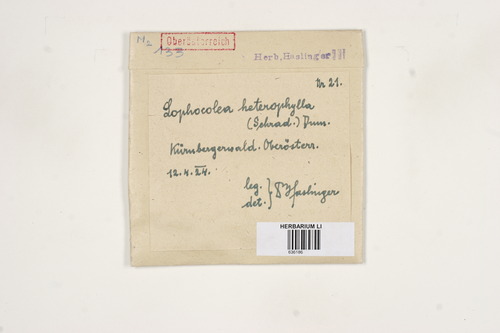 M2
Oberösterreich
133
Herb. Haslinger
Nr 21.
Lophocolea heterophylla
(Schrad.) Dum.
Kürnbergerwald. Oberösterr.
12.4.24.
leg.
det. Haslinger
HERBARIUM LI